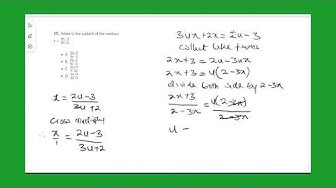 15. Make u the subject of the relation
x = 2u - 3
3u + 2
x = 2u - 3
3u + 2
cross multiply
∴ x = 2u - 3
1 3u + 2
3ux + 2x = 2u - 3
collect like terms
2x + 3 = 2u - 3ux
2x + 3 = u(2 - 3x)
divide both side by 2 - 3x
2x + 3 = u(2 - 3x)
2 - 3x 2 - 3x
u =